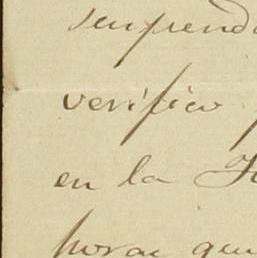 suspend
verifico
en la
horas que